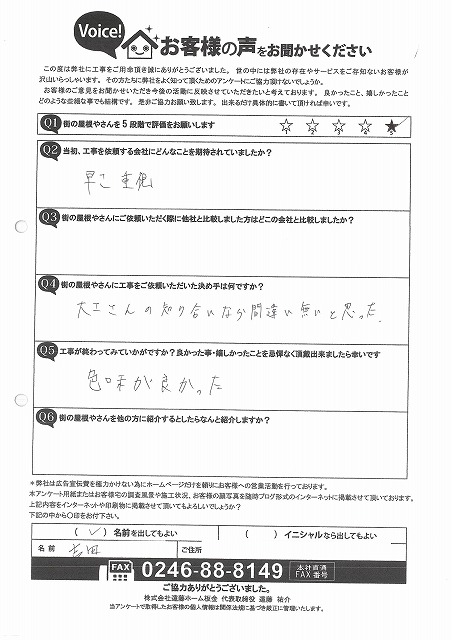 Voice!
お客様の声をお聞かせください
この度は弊社に工事をご用命頂き誠にありがとうございました。世の中には弊社の存在やサービスをご存知ないお客様が
沢山いらっしゃいます。その方たちに弊社をよく知って頂くためのアンケートにご協力頂けないでしょうか。
お客様のご意見をお聞かせいただき今後の活動に反映させていただきたいと考えております。良かったこと、嬉しかったこと
どのような些細な事でも結構です。是非ご協力お願い致します。出来るだけ具体的に書いて頂ければ幸いです。
Q1 街の屋根やさんを5段階で評価をお願いします
☆ ☆ ☆ ☆ ★
1 2 3 4 5
Q2 当初、工事を依頼する会社にどんなことを期待されていましたか？
早さ重視
Q3 街の屋根やさんにご依頼いただく際に他社と比較しました方はどこの会社と比較しましたか？
Q4 街の屋根やさんに工事をご依頼いただいた決め手は何ですか？
大工さんの知り合いなら間違い無いと思った.
Q5 工事が終わってみていかがですか？良かった事・嬉しかったことを忌憚なく頂戴出来ましたら幸いです
色味が良かった
Q6 街の屋根やさんを他の方に紹介するとしたらなんと紹介しますか？
＊弊社は広告宣伝費を極力かけない為にホームページだけを頼りにお客様への営業活動を行っております。
本アンケート用紙またはお客様宅の調査風景や施工状況、お客様の顔写真を随時ブログ形式のインターネットに掲載させて頂いております。
上記内容をインターネットや印刷物に掲載させて頂いてもよろしいでしょうか？
下記の中から〇印をお付け下さい。
( ✓ ) 名前を出してもよい ( ) イニシャルなら出してもよい
名前 吉田 ご住所
FAX 0246-88-8149 本社直通 FAX番号
ご協力ありがとうございました。
株式会社遠藤ホーム板金 代表取締役 遠藤 祐介
当アンケートで取得したお客様の個人情報は関係法規に基づき厳正に管理いたします。